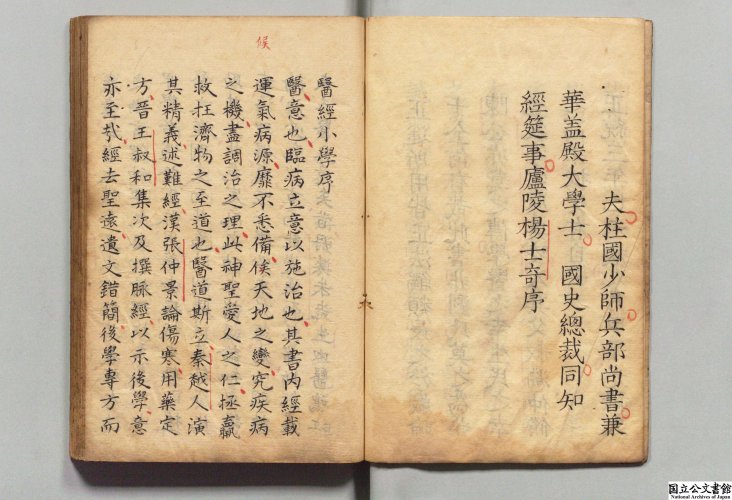 夫柱國少師兵部尚書兼
華盖殿大學士國史總裁同知
經筵事廬陵楊士奇序
候
醫經小學序
醫意也臨病立意以施治也其書內經載
運氣病源靡不悉備俟天地之變究疾病
之機盡調治之理此神聖愛人之仁拯羸
救枉濟物之至道也醫道斯立秦越人演
其精義述難經漢張仲景論傷寒用藥定
方晋王叔和集次及撰脉經以示後學意
亦至矣經去聖遠遺文錯簡後學專方而
国立公文書館
National Archives of Japan